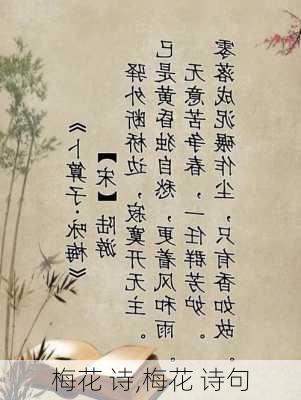 《卜算子·咏梅》
【宋】陆游
驿外断桥边，寂寞开无主。
已是黄昏独自愁，更着风和雨。
无意苦争春，一任群芳妒。
零落成泥碾作尘，只有香如故。
梅花 诗,梅花 诗句